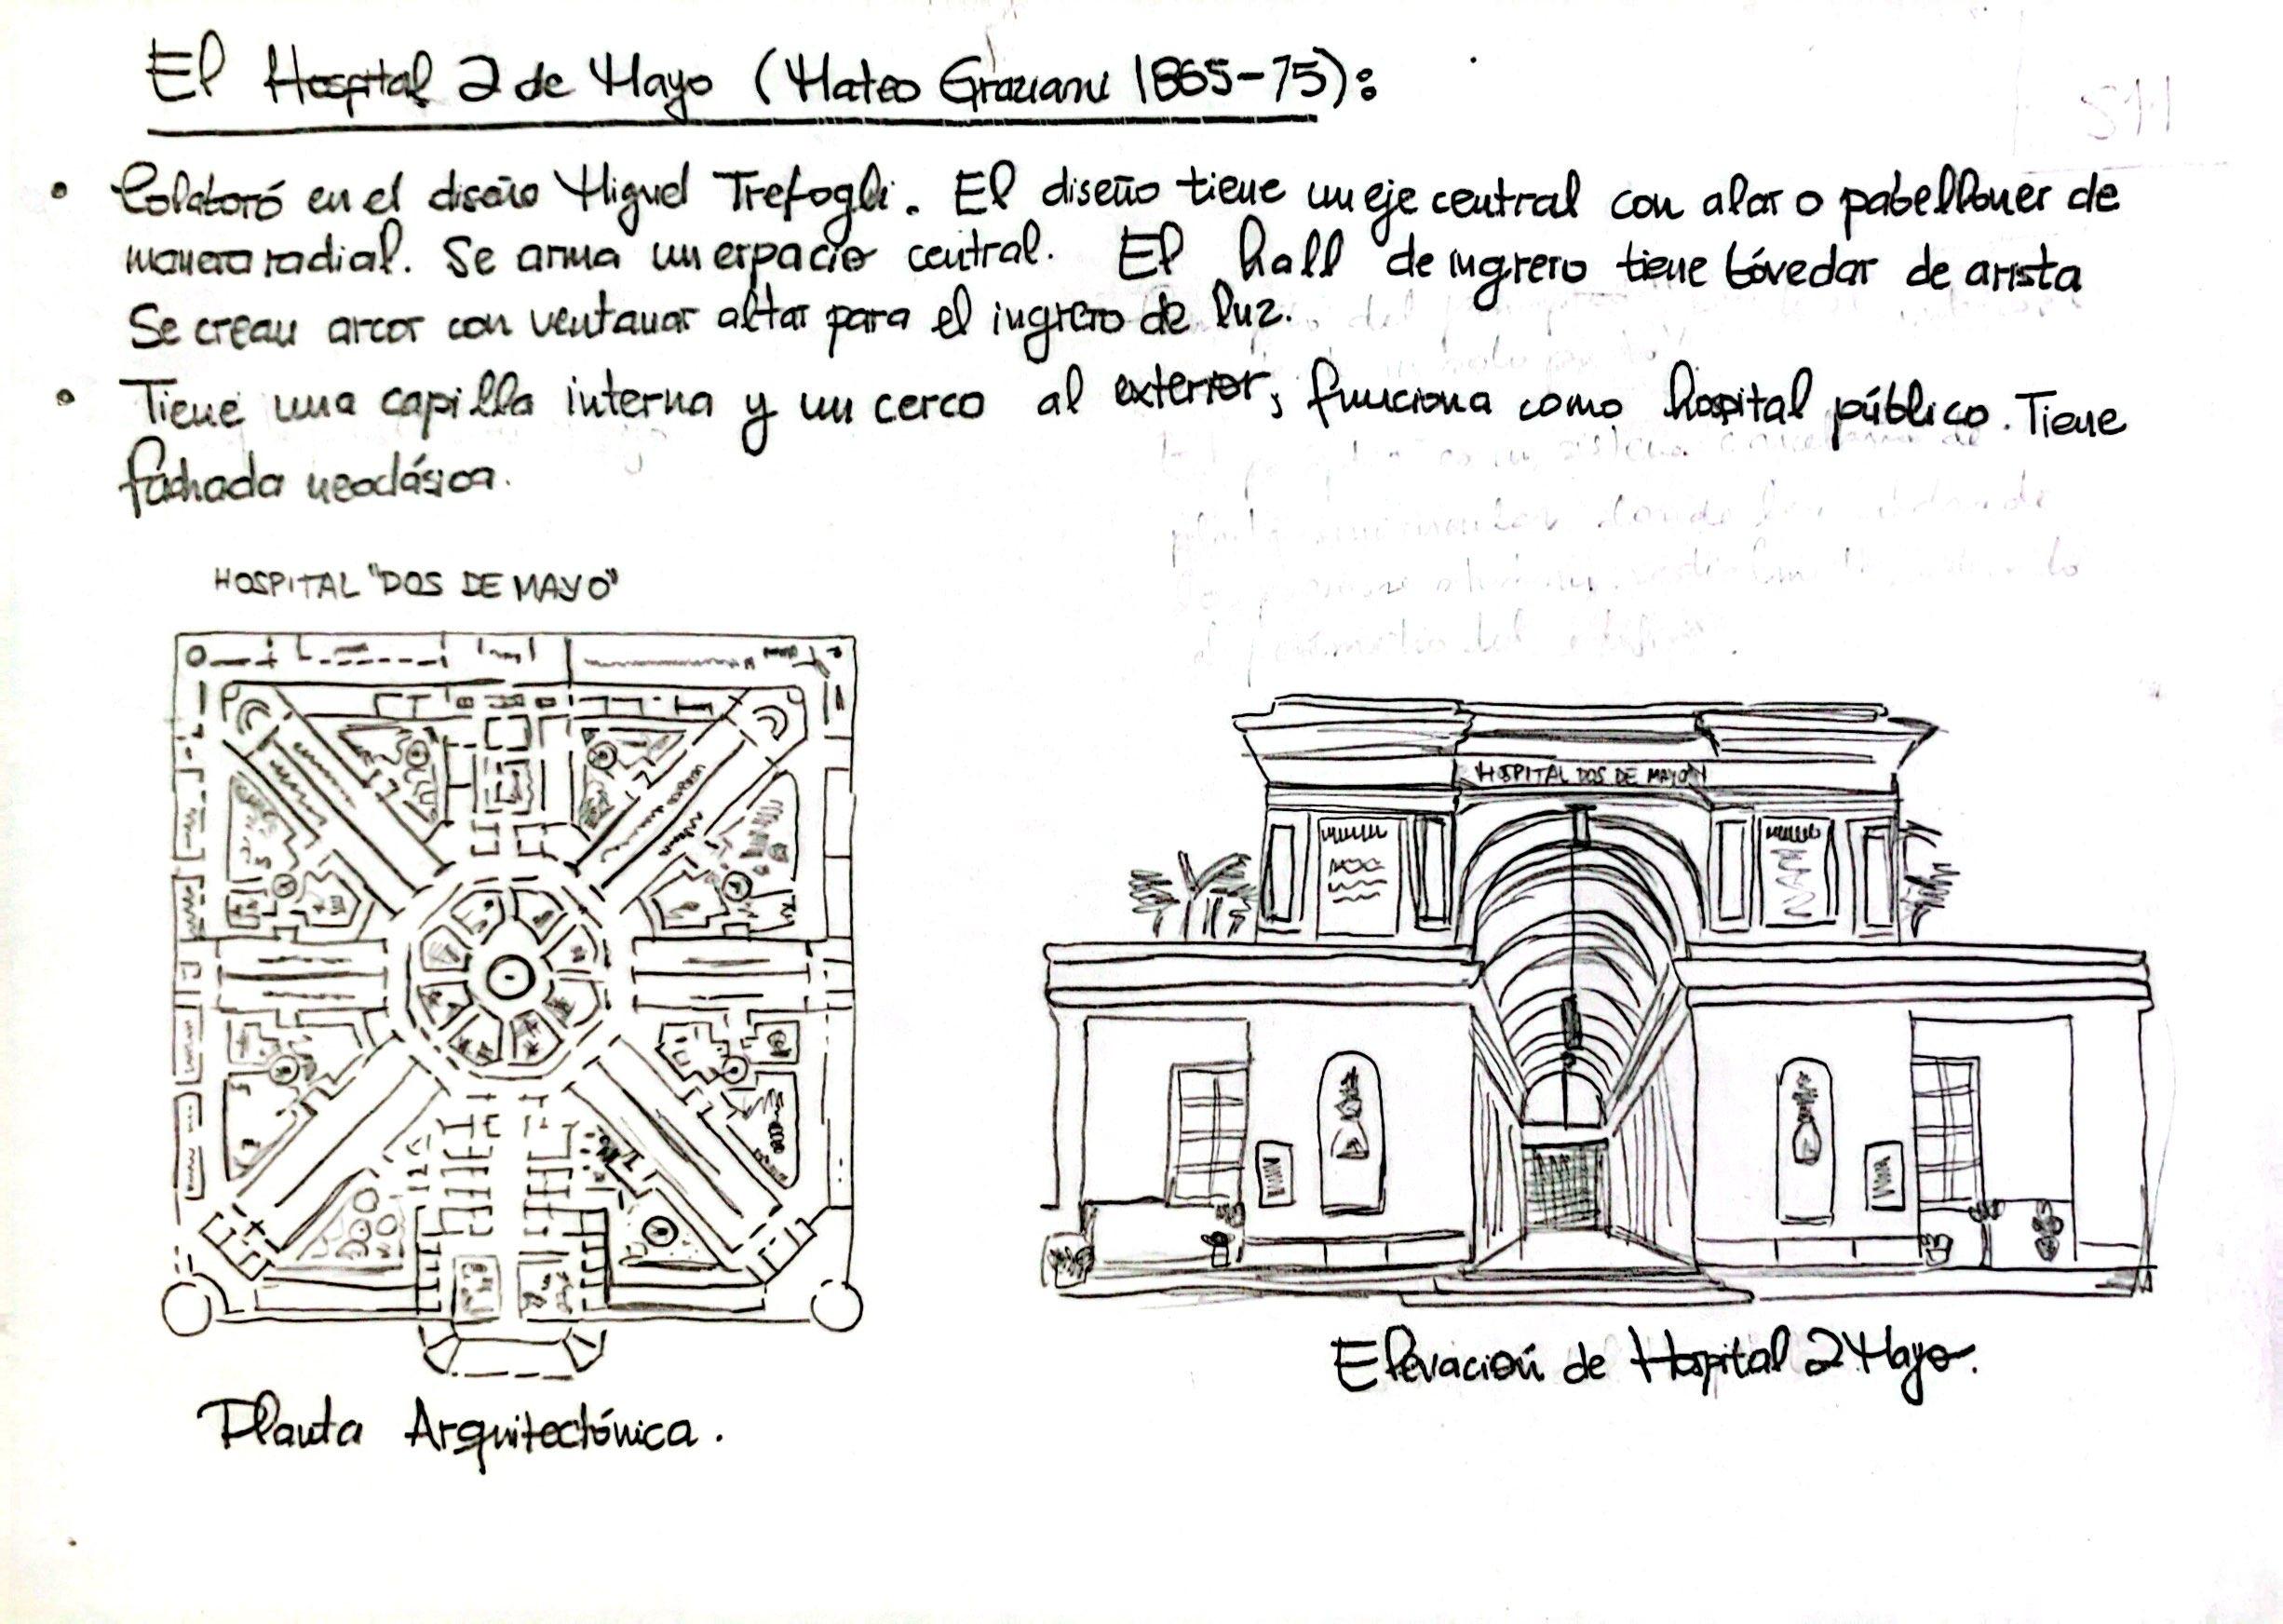 El Hospital 2 de Mayo (Mateo Graziani 1865-75):
• Colaboró en el diseño Miguel Trefogli. El diseño tiene un eje central con alas o pabellones de
manera radial. Se arma un espacio central. El hall de ingreso tiene bóvedas de arista
Se crean arcos con ventanas altas para el ingreso de luz.
• Tiene una capilla interna y un cerco al exterior, funciona como hospital público. Tiene
fachada neoclásica.
HOSPITAL "DOS DE MAYO"
HOSPITAL DOS DE MAYO
Planta Arquitectónica.
Elevación de Hospital 2 Mayo.